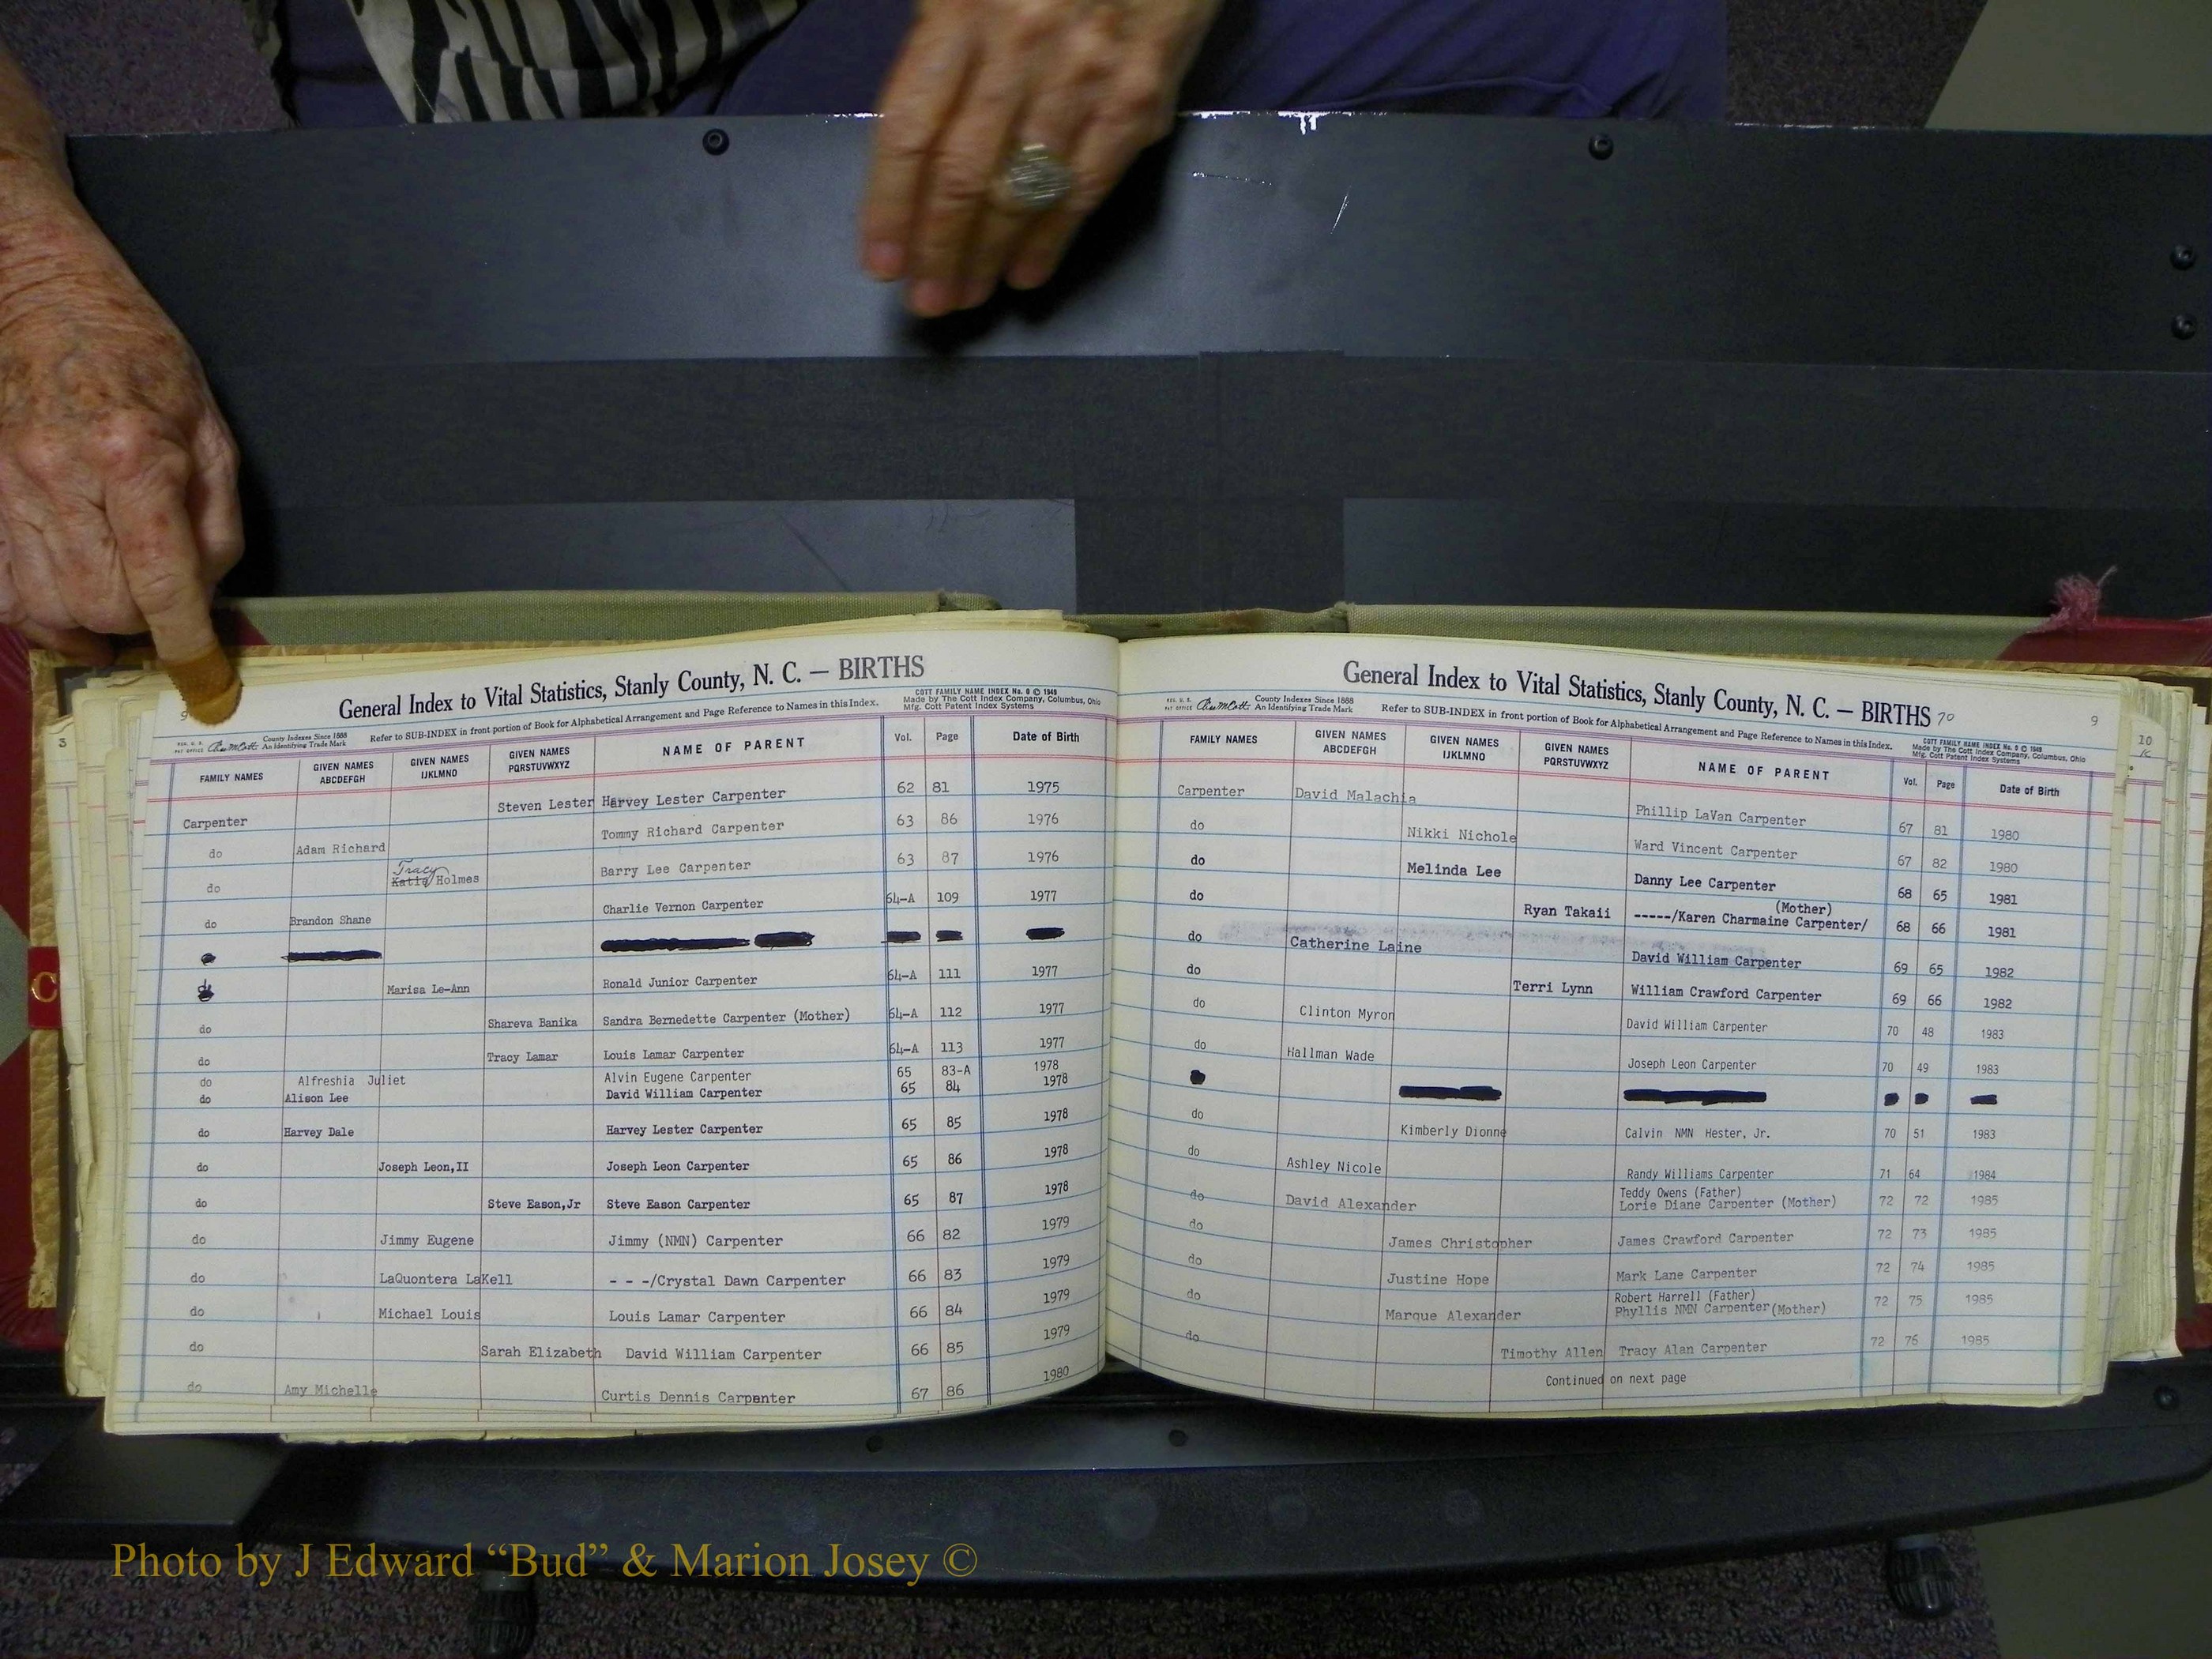 General Index to Vital Statistics, Stanly County, N. C. — BIRTHS
COTT FAMILY NAME INDEX No. 6 © 1949
Made by The Cott Index Company, Columbus, Ohio
Mfg. Cott Patent Index Systems
County Indexes Since 1888
An Identifying Trade Mark
Refer to SUB-INDEX in front portion of Book for Alphabetical Arrangement and Page Reference to Names in this Index.
FAMILY NAMES GIVEN NAMES ABCDEFGH GIVEN NAMES IJKLMNO GIVEN NAMES PQRSTUVWXYZ NAME OF PARENT Vol. Page Date of Birth
Carpenter Steven Lester Harvey Lester Carpenter 62 81 1975
do Adam Richard Tommy Richard Carpenter 63 86 1976
do Tracy Katie Holmes Barry Lee Carpenter 63 87 1976
do Brandon Shane Charlie Vernon Carpenter 64-A 109 1977
Marisa Le-Ann Ronald Junior Carpenter 64-A 111 1977
do Shareva Banika Sandra Bernedette Carpenter (Mother) 64-A 112 1977
do Tracy Lamar Louis Lamar Carpenter 64-A 113 1977
do Alfreshia Juliet Alvin Eugene Carpenter 65 83-A 1978
do Alison Lee David William Carpenter 65 84 1978
do Harvey Dale Harvey Lester Carpenter 65 85 1978
do Joseph Leon,II Joseph Leon Carpenter 65 86 1978
do Steve Eason,Jr Steve Eason Carpenter 65 87 1978
do Jimmy Eugene Jimmy (NMN) Carpenter 66 82 1979
do LaQuontera LaKell - - -/Crystal Dawn Carpenter 66 83 1979
do Michael Louis Louis Lamar Carpenter 66 84 1979
do Sarah Elizabeth David William Carpenter 66 85 1979
do Amy Michelle Curtis Dennis Carpenter 67 86 1980
General Index to Vital Statistics, Stanly County, N. C. — BIRTHS 70
9
County Indexes Since 1888
An Identifying Trade Mark
Refer to SUB-INDEX in front portion of Book for Alphabetical Arrangement and Page Reference to Names in this Index.
COTT FAMILY NAME INDEX No. 6 © 1949
Made by The Cott Index Company, Columbus, Ohio
Mfg. Cott Patent Index Systems
FAMILY NAMES GIVEN NAMES ABCDEFGH GIVEN NAMES IJKLMNO GIVEN NAMES PQRSTUVWXYZ NAME OF PARENT Vol. Page Date of Birth
Carpenter David Malachia Phillip LaVan Carpenter 67 81 1980
do Nikki Nichole Ward Vincent Carpenter 67 82 1980
do Melinda Lee Danny Lee Carpenter 68 65 1981
(Mother)
do Ryan Takaii -----/Karen Charmaine Carpenter/ 68 66 1981
do Catherine Laine David William Carpenter 69 65 1982
do Terri Lynn William Crawford Carpenter 69 66 1982
do Clinton Myron David William Carpenter 70 48 1983
do Hallman Wade Joseph Leon Carpenter 70 49 1983
do Kimberly Dionne Calvin NMN Hester, Jr. 70 51 1983
do Ashley Nicole Randy Williams Carpenter 71 64 1984
Teddy Owens (Father)
do David Alexander Lorie Diane Carpenter (Mother) 72 72 1985
do James Christopher James Crawford Carpenter 72 73 1985
do Justine Hope Mark Lane Carpenter 72 74 1985
Robert Harrell (Father)
do Marque Alexander Phyllis NMN Carpenter (Mother) 72 75 1985
do Timothy Allen Tracy Alan Carpenter 72 76 1985
Continued on next page
3
10
C
Photo by J Edward “Bud” & Marion Josey ©